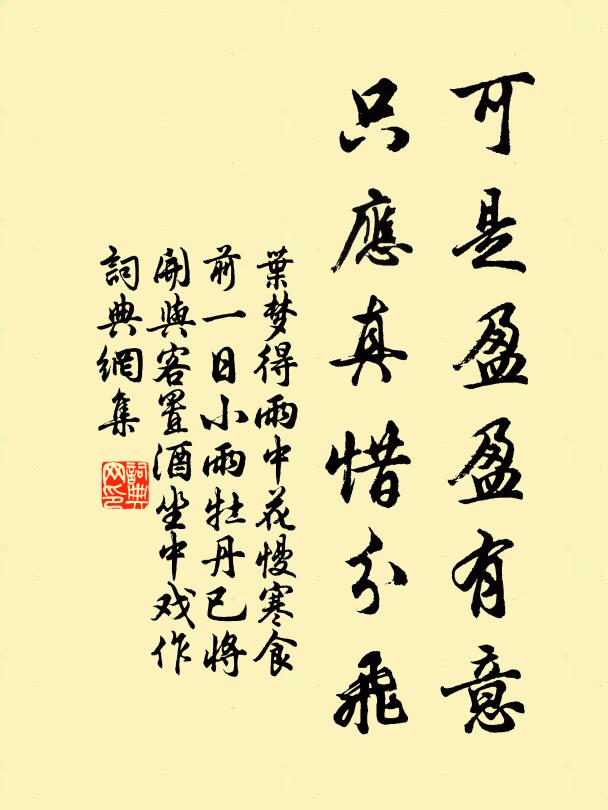 可是盈盈有意
只應真惜分飛
葉梦得雨中花慢寒食
前一日小雨牡丹已將
開與客置酒坐中戏作
詞典網集
詞典網印